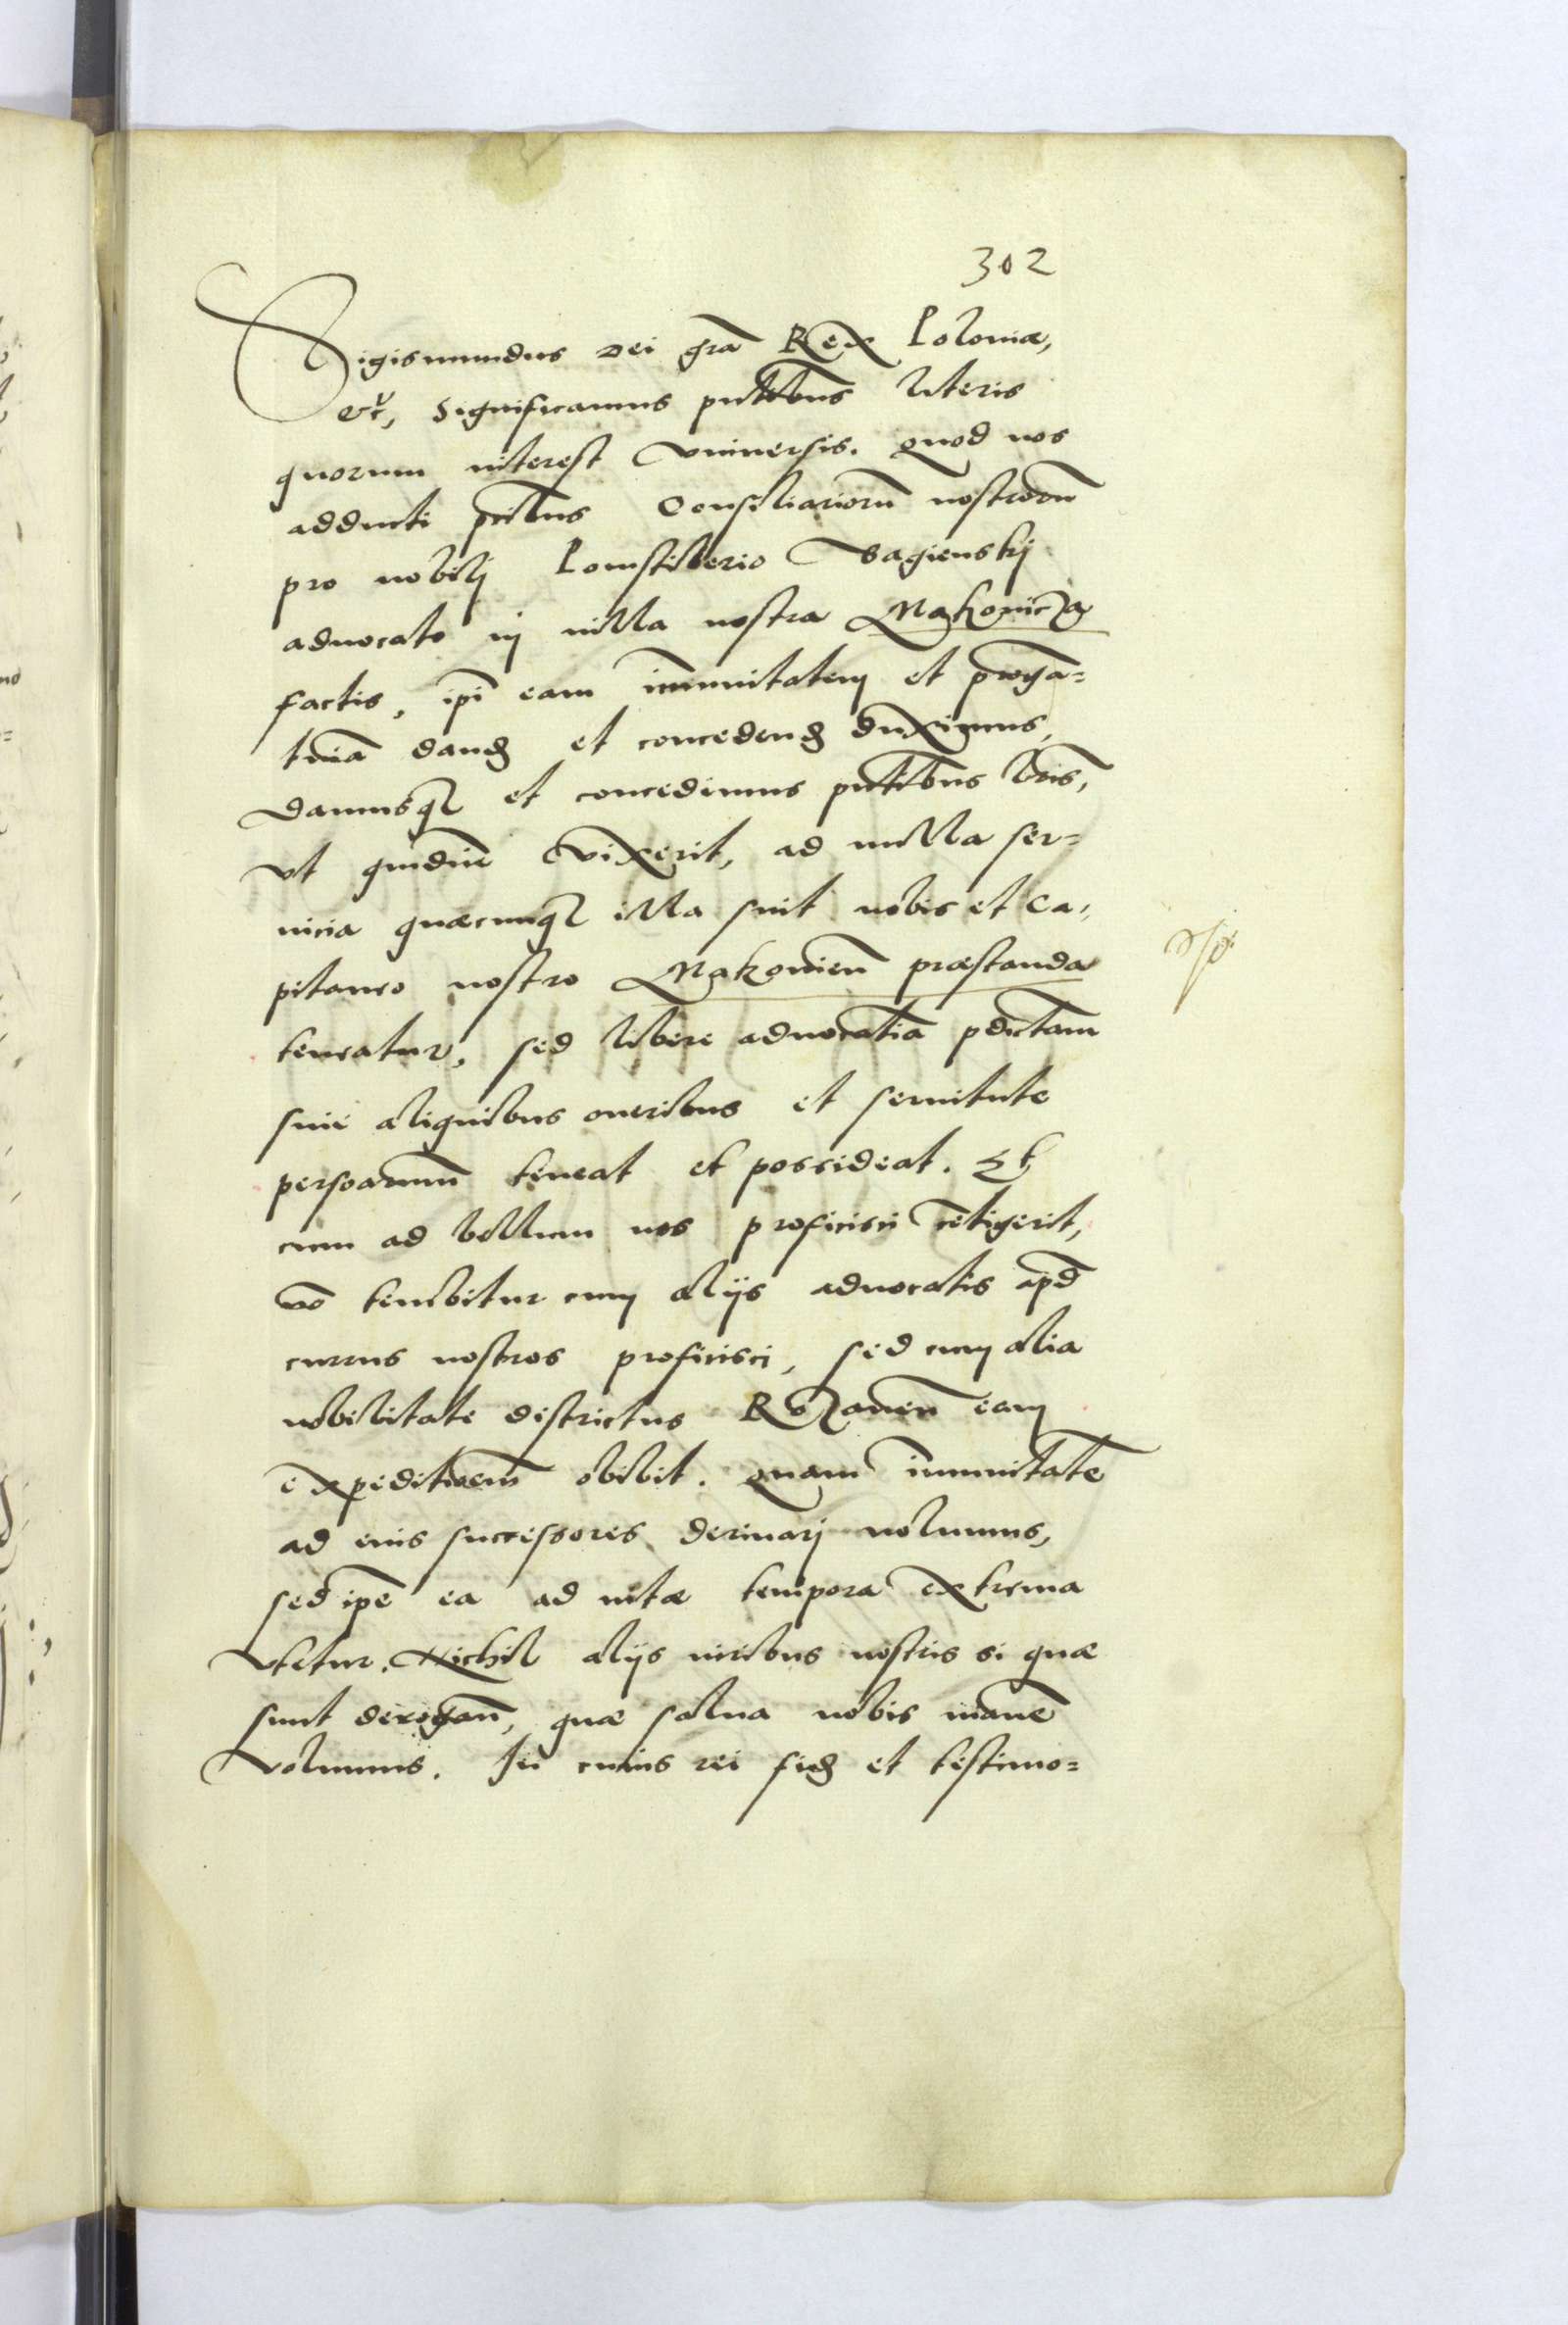 302
Sigismundus Dei gr̃a Rex Poloniæ,
etc̃, Significamus pñtibus literis
quorum interest vniuersis. Quod nos
adducti p̃cibus Consiliariorũ nostrorũ
pro nobilj
aduocato in uilla nostra Makowicza
factis, ip̃i eam im̃unitatem et p̃roga=
tiuã dand et concedend duximus,
Damusq et concedimus pñtibus l̃ris,
vt quãdiu vixerit, ad nulla ser=
uicia quæcunq illa sint nobis et Ca=
pitaneo nostro Makowieñ præstanda
teneatur, sed libere aduocatiã p̃dictam
sine aliquibus oneribus et seruitute
teneat et possideat. Et
cum ad bellum nos proficisci cõtigerit,
nõ tenebitur cum alijs aduocatis apd̃
currus nostros proficisci, sed cum alia
nobilitate districtus Rozaneñ eam
expeditioem̃ obibit. Quam im̃unitatẽ
ad eius successores deriuarj nolumus,
sed ip̃e ea ad uitæ tempora extrema
vtetur. Nichil alijs iuribus nostris si quæ
sunt derogañ, quæ salua nobis manẽ
volumus. In cuius rei fid et testimo=